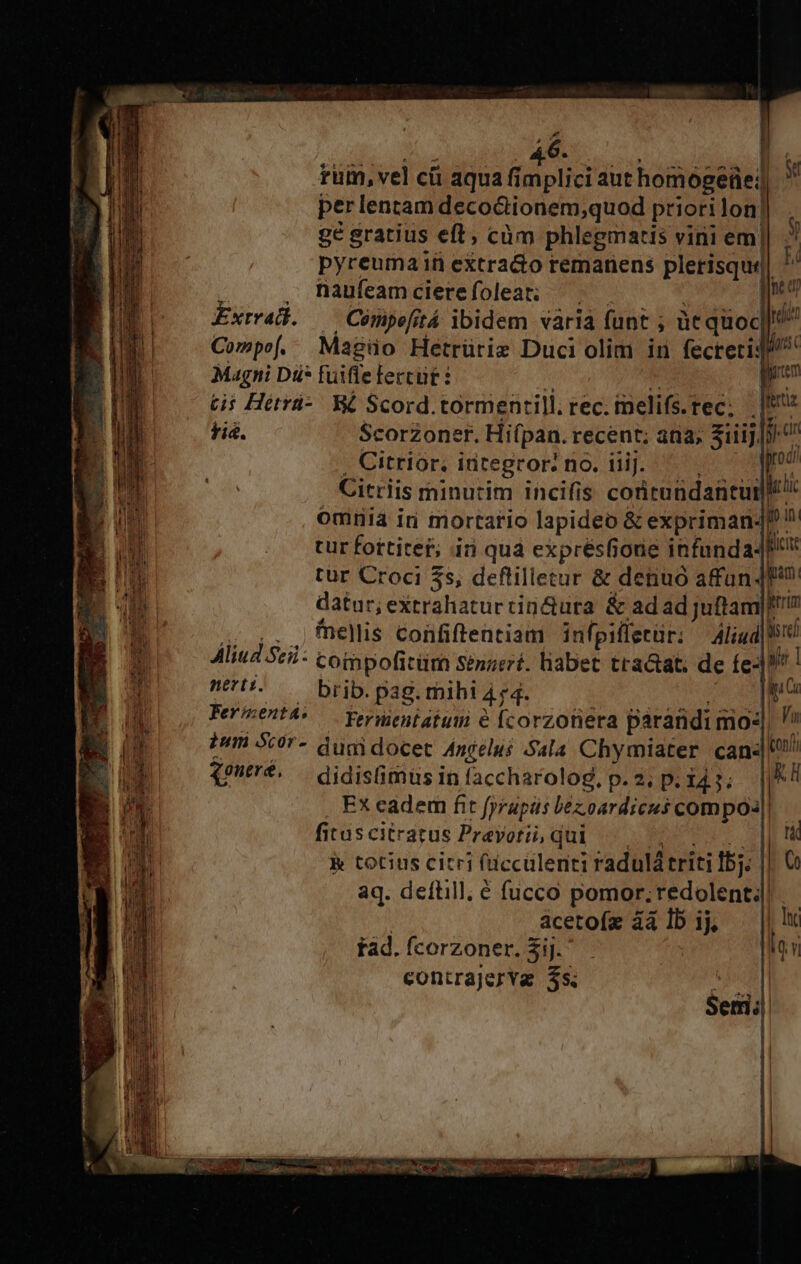 46.
rum, vel cũ aqua simplici aut homogeñei
per lentam decoctionem, quod priori lon
ge gratius est, cùm phlegmatis vini em
pyreuma in extracto remanens plerisque
nauseam ciere soleat.
Extract. Composita ibidem varia sunt, ut quod
Compos. Magno Hetruriæ Duci olim in secretis
Magni Du- fuisse fertur:
cis Hetru- ℞ Scord. tormentill. rec. melifs. rec.
riæ. Scorzoner. Hispan. recent. ana, ℥iiij
Citrior. integror. no. iiij.
Citriis minutim incisis contundantur
omnia in mortario lapideo & expriman-
tur fortiter, in quâ expressione infunda-
tur Croci ℥s, destilletur & denuò affun-
datur, extrahatur tinctura & ad ad justam
mellis consistentiam inspissetur. Aliud
Aliud Sen- compositum Sennert. habet tractat. de fe-
nerti. brib. pag. mihi 454.
Fermenta- Fermentatum è scorzonera parandi mo-
tum Scor- dum docet Angelus Sala Chymiater can-
zoneræ. didissimus in saccharolog. p. 2. p. 143.
Ex eadem fit syrupus bezoardicus compo-
situs citratus Prævotii, qui
℞ totius citri succulenti radulâ triti ℔j.
aq. destill. è succo pomor. redolent.
acetosæ āā ℔ ij,
rad. scorzoner. ℥ij.
contrajervæ ℥s.
Semi.